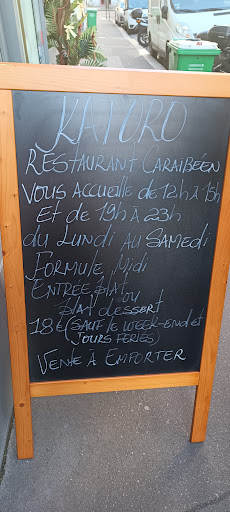 KAYORO
RESTAURANT CARAIBÉEN
VOUS ACCUeille de 12h à 15h
Et de 19h à 23h
du Lundi Au SAMEDi
FORMULE Midi
ENTREE plAt
ou
plat dessert
18€ (SAUF le WEEK-END et
JOURS FERIES)
VENTE À EMPORTER